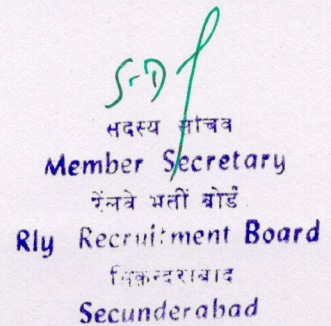 सदस्य सचिव
Member Secretary
रेलवे भर्ती बोर्ड
Rly Recruitment Board
सिकन्दराबाद
Secunderabad